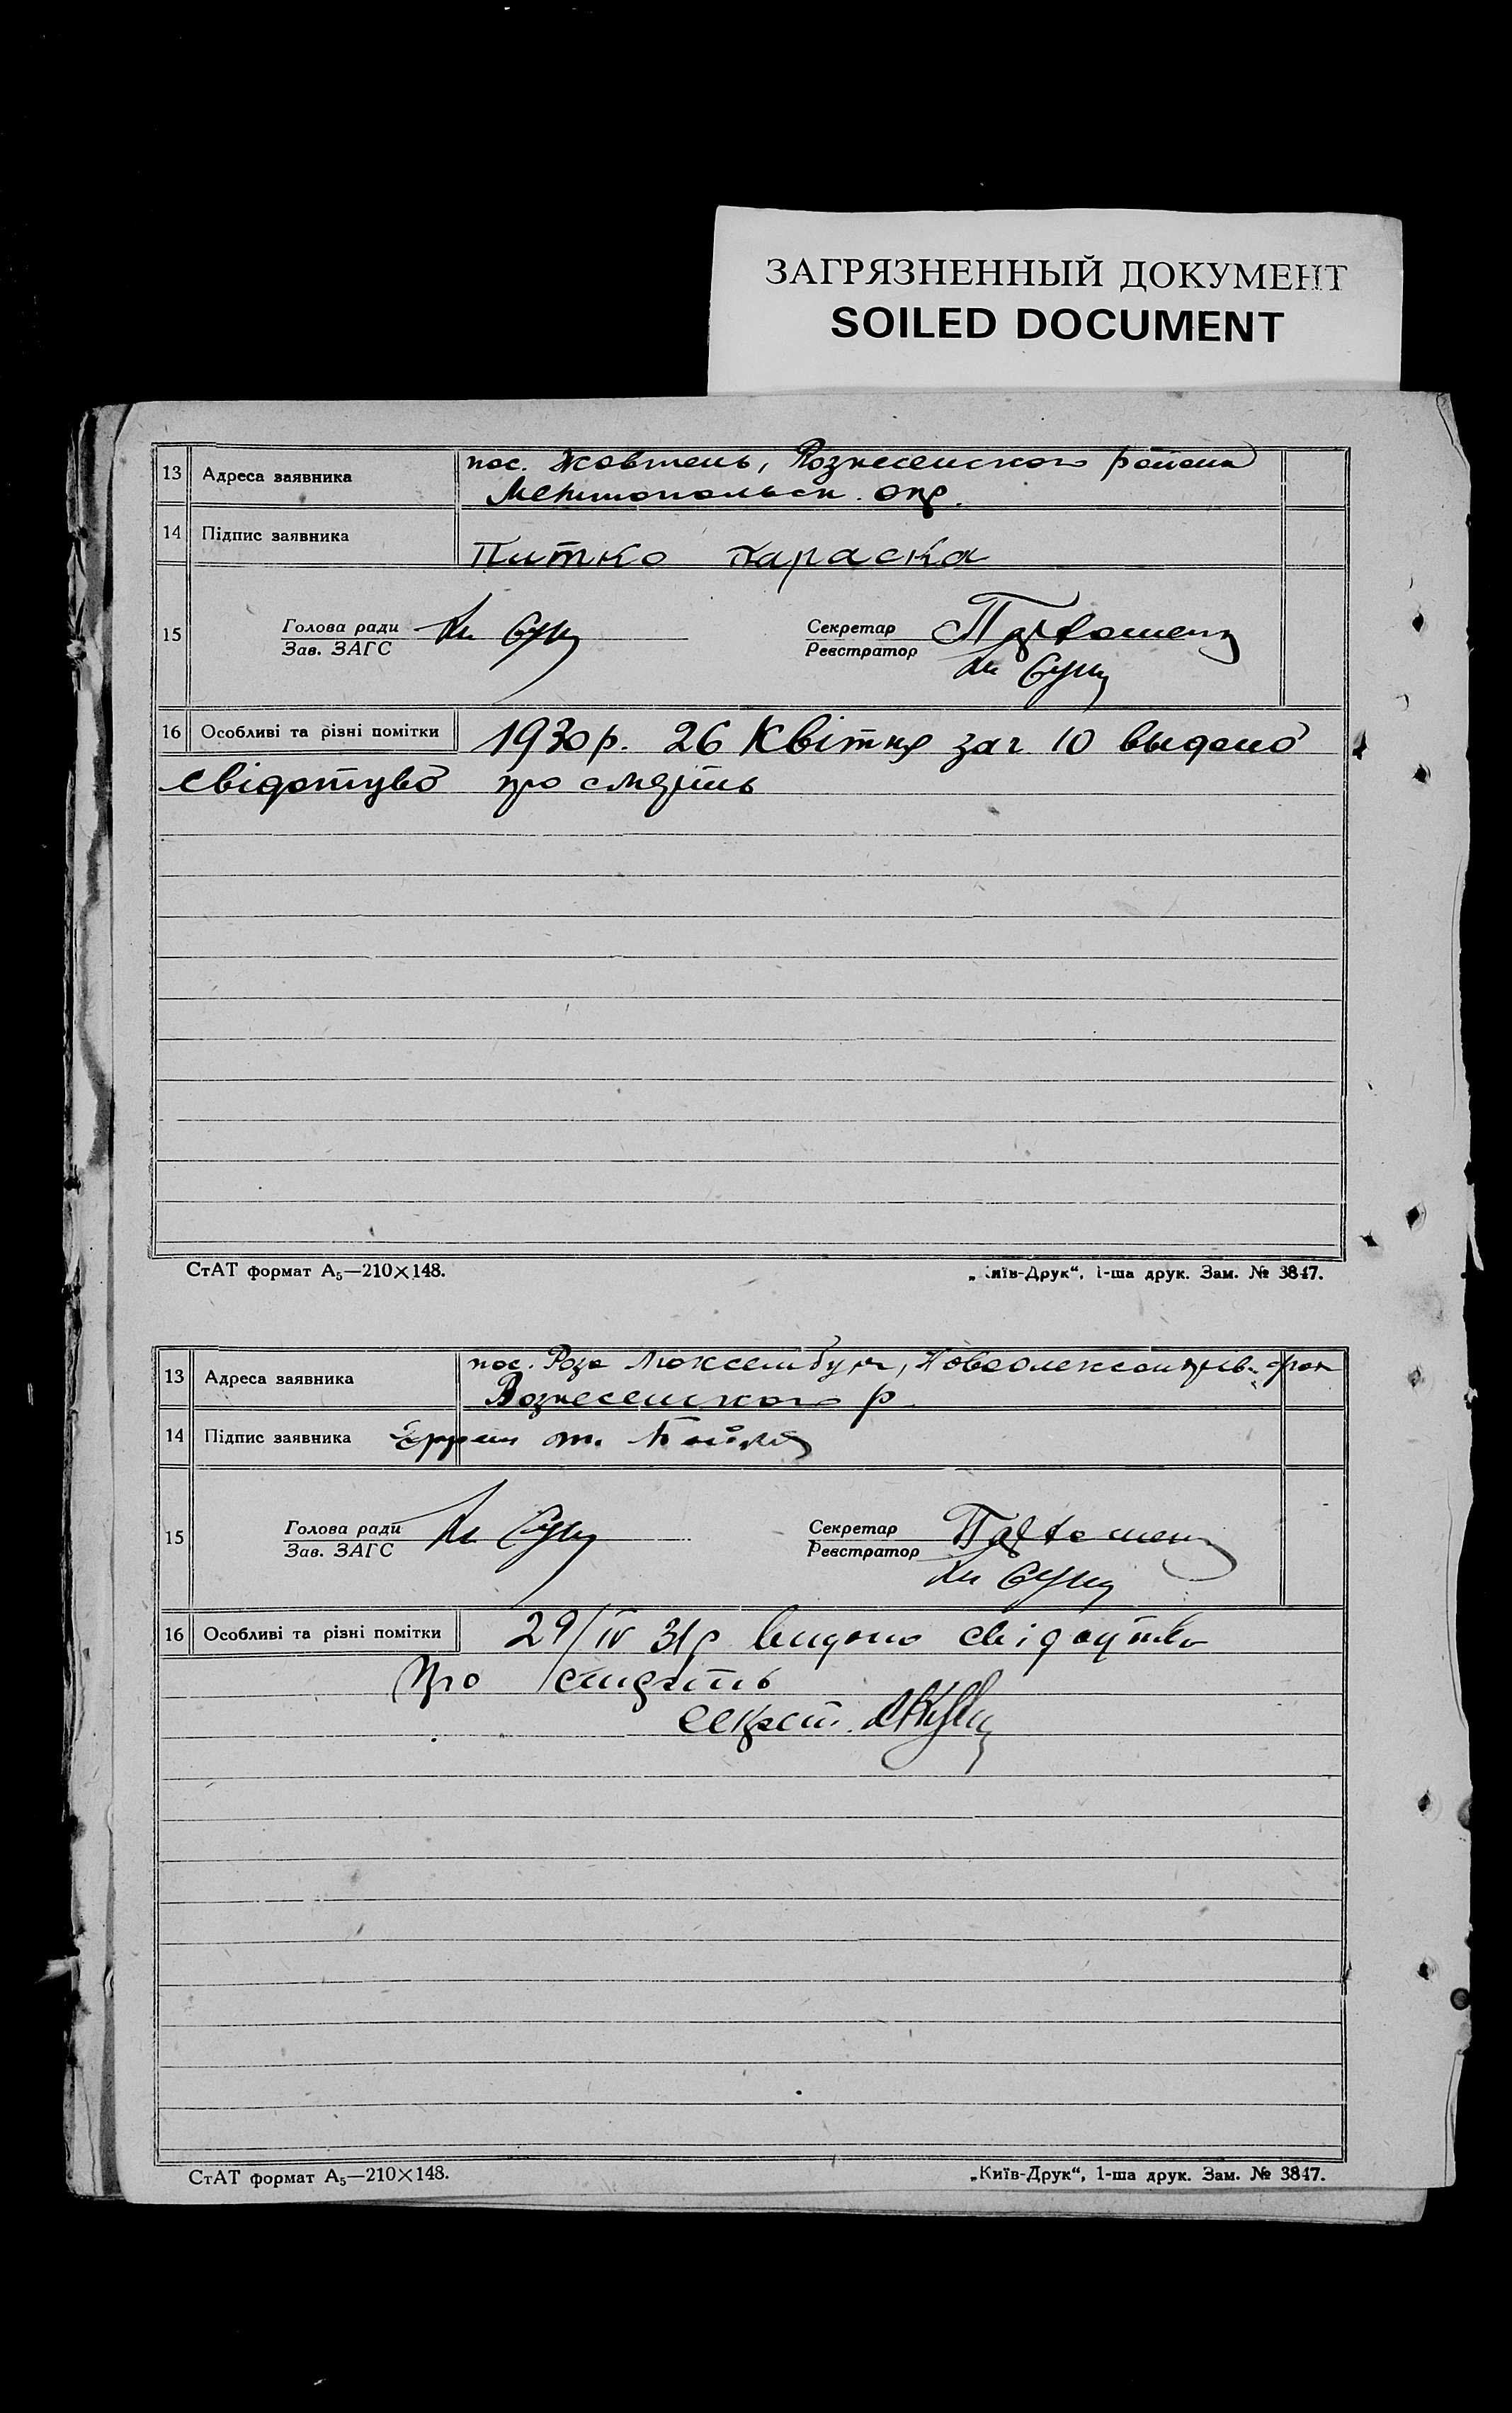 ЗАГРЯЗНЕННЫЙ ДОКУМЕНТ
SOILED DOCUMENT
13 Адреса заявника пос. Жовтень, Вознесенского району
Мелитопольск. окр.
14 Підпис заявника Питко Тараска
15 Голова ради Секретар
Зав. ЗАГС Реєстратор
16 Особливі та різні помітки 1930 р. 26 Квітня за ч 10 выдано
свідотцво про смерть
СтАТ формат А₅—210×148. „Київ-Друк“, 1-ша друк. Зам. № 3847.
13 Адреса заявника пос. Роза Люксембург, Новоолександрів.
Вознесенского р
14 Підпис заявника
15 Голова ради Секретар
Зав. ЗАГС Реєстратор
16 Особливі та різні помітки 29/IV 31р видано
про смерть
секрет.
СтАТ формат А₅—210×148. „Київ-Друк“, 1-ша друк. Зам. № 3847.